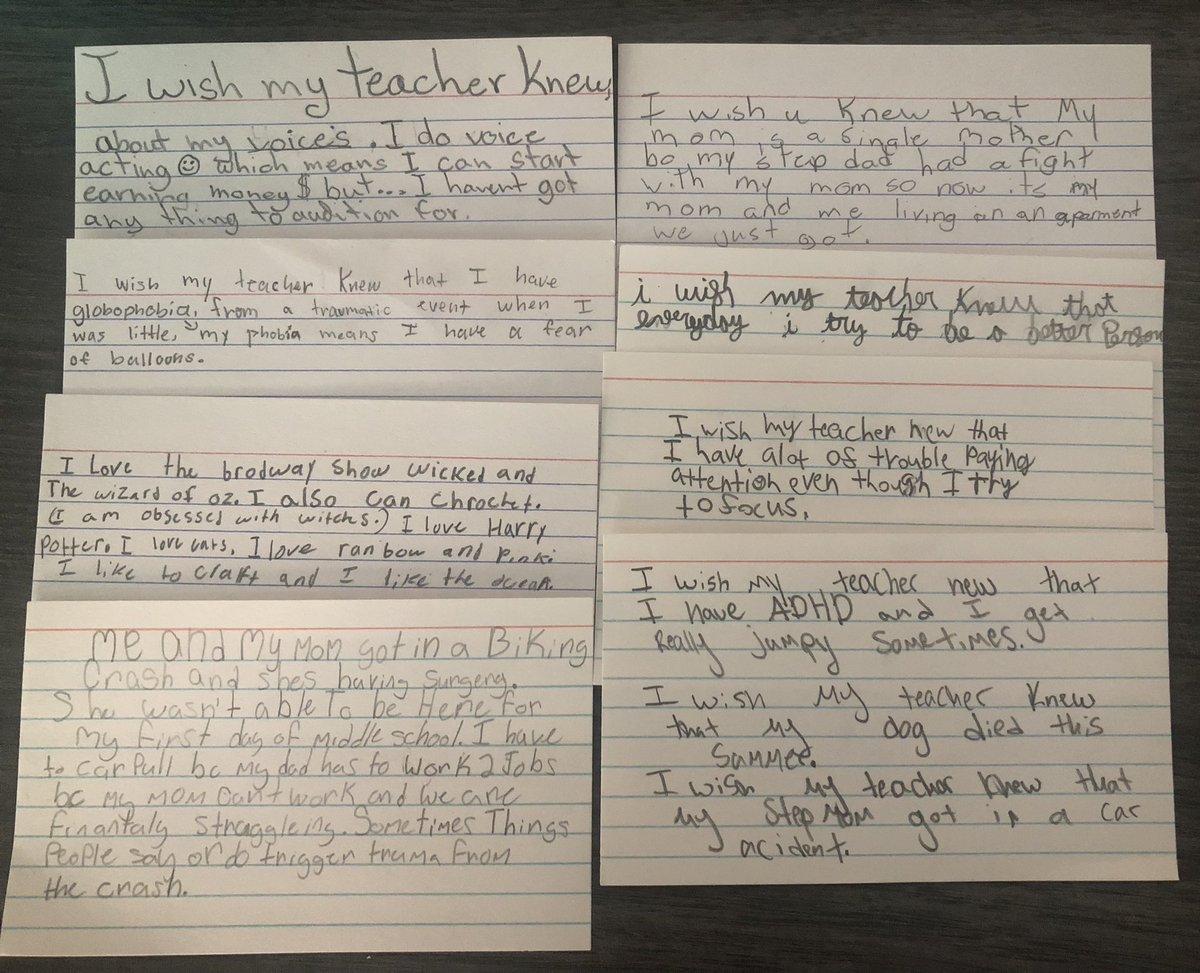 I wish my teacher knew,
about my voice's. I do voice
acting☺ which means I can start
earning money$ but... I havent got
any thing to audition for.
I wish my teacher knew that I have
globophobia, from a traumatic event when I
was little, my phobia means I have a fear
of balloons.
I Love the brodway show wicked and
The wizard of oz. I also can chrochet.
(I am obsessed with witches.) I love Harry
Potter. I love cats. I love ranbow and pink.
I like to craft and I like the ocean.
Me and My Mom got in a Biking
Crash and shes having surgerg.
She wasn't able To be Here for
my First day of Middle school. I have
to carpull bc My dad has to Work 2 Jobs
bc my MOM can't work and we are
finantaly struggleing. Sometimes Things
People say or do trigger truma from
the crash.
I wish u knew that My
mom is a single mother
bc my step dad had a fight
with my mom so now its my
mom and me living in an aparment
we just got.
i wish my teacher knew that
everyday i try to be a better Person
I wish my teacher new that
I have alot of trouble paying
attention even though I try
to focus.
I wish my teacher new that
I have ADHD and I get
Really jumpy Sometimes.
I wish my teacher knew
that my dog died this
Summer.
I wish my teacher knew that
my Step Mom got in a car
acident.